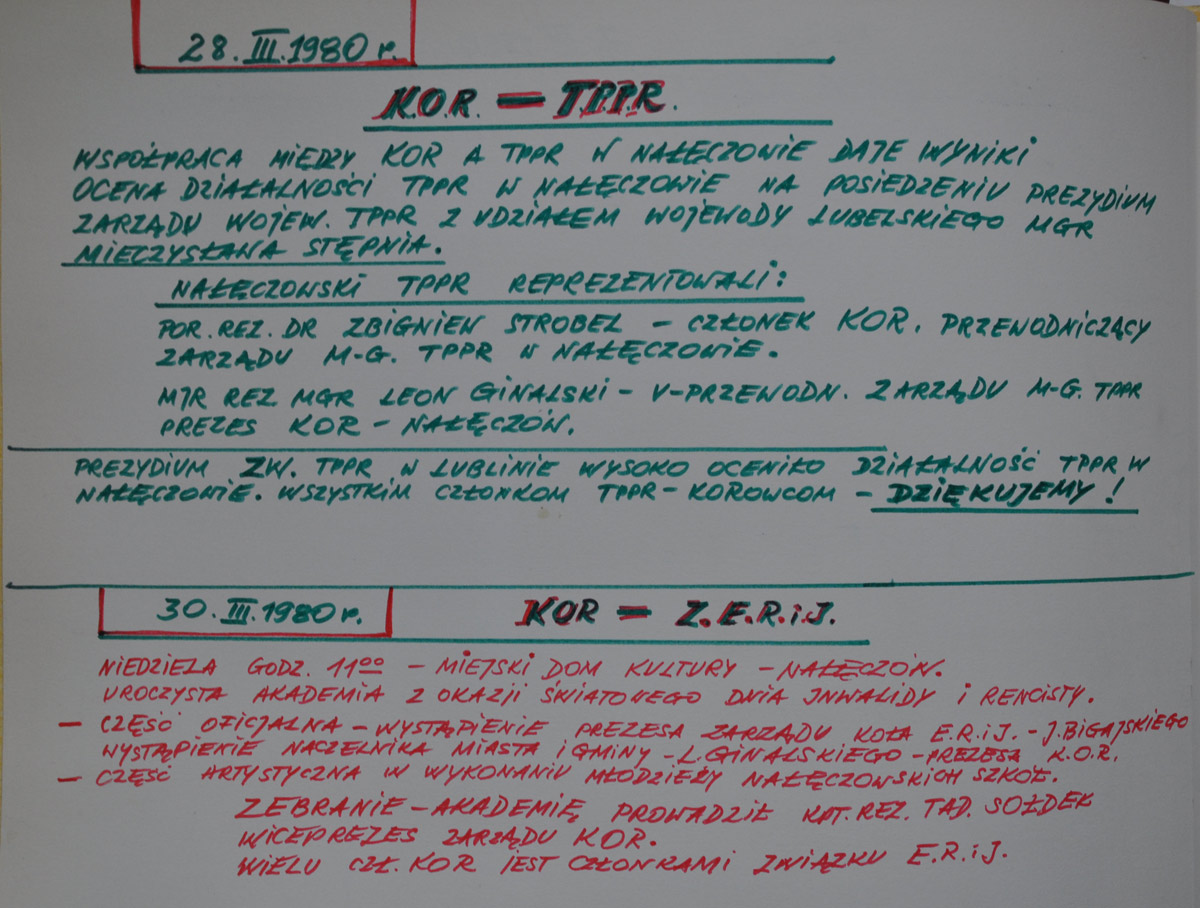 28. III. 1980 r.
K.O.R. = T.P.P.R.
WSPÓŁPRACA MIĘDZY KOR A TPPR W NAŁĘCZOWIE DAJE WYNIKI
OCENA DZIAŁALNOŚCI TPPR W NAŁĘCZOWIE NA POSIEDZENIU PREZYDIUM
ZARZĄDU WOJEW. TPPR Z UDZIAŁEM WOJEWODY LUBELSKIEGO MGR
MIECZYSŁAWA STĘPNIA.
NAŁĘCZOWSKI TPPR REPREZENTOWALI:
POR. REZ. DR ZBIGNIEW STROBEL - CZŁONEK KOR. PRZEWODNICZĄCY
ZARZĄDU M-G. TPPR W NAŁĘCZOWIE.
MJR REZ. MGR LEON GINALSKI - V-PRZEWODN. ZARZĄDU M-G. TPPR
PREZES KOR - NAŁĘCZÓW.
PREZYDIUM ZW. TPPR W LUBLINIE WYSOKO OCENIŁO DZIAŁALNOŚĆ TPPR W
NAŁĘCZOWIE. WSZYSTKIM CZŁONKOM TPPR - KOROWCOM - DZIĘKUJEMY!
30. III. 1980 r. KOR = Z.E.R.i.J.
NIEDZIELA GODZ. 11⁰⁰ - MIEJSKI DOM KULTURY - NAŁĘCZÓW.
UROCZYSTA AKADEMIA Z OKAZJI ŚWIATOWEGO DNIA JNWALIDY i RENCISTY.
- CZĘŚĆ OFICJALNA - WYSTĄPIENIE PREZESA ZARZĄDU KOŁA E.R.iJ. - J. BIGAJSKIEGO
WYSTĄPIENIE NACZELNIKA MIASTA i GMINY - L. GINALSKIEGO - PREZESA K.O.R.
- CZĘŚĆ ARTYSTYCZNA W WYKONANIU MŁODZIEŻY NAŁĘCZOWSKICH SZKÓŁ.
ZEBRANIE - AKADEMIĘ PROWADZIŁ KPT. REZ. TAD. SOŁDEK
WICEPREZES ZARZĄDU KOR.
WIELU CZŁ. KOR JEST CZŁONKAMI ZWIĄZKU E.R.iJ.